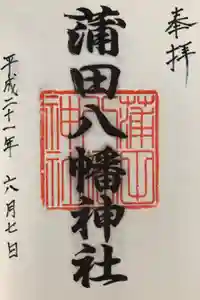 奉拝
蒲田八幡神社
平成二十一年 六月七日
蒲田
神社